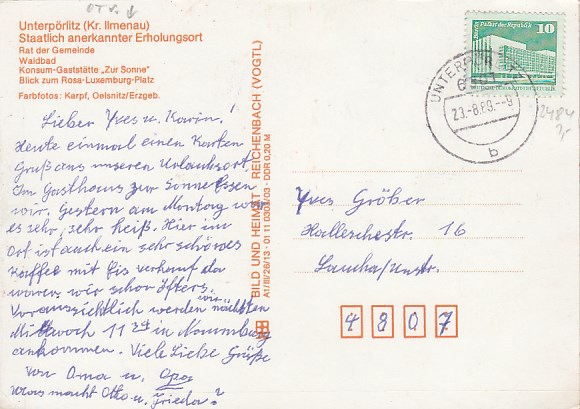 OT v.
Unterpörlitz (Kr. Ilmenau)
Staatlich anerkannter Erholungsort
Rat der Gemeinde
Waldbad
Konsum-Gaststätte „Zur Sonne"
Blick zum Rosa-Luxemburg-Platz
Farbfotos: Karpf, Oelsnitz/Erzgeb.
Lieber Yves u. Karin!
Heute einmal einen Karten
Gruß aus unseren Urlaubsort.
Im Gasthaus zur Sonne Essen
wir. Gestern am Montag war
es sehr, sehr heiß. Hier im
Ort ist auch ein sehr schönes
Kaffee mit Eis verkauf da
waren wir schon öfters.
Voraussichtlich werden wir nächsten
Mittwoch 11 in Naumburg
ankommen. Viele Liebe Grüße
von Oma u. Opa
was macht Otto u. Frieda?
BILD UND HEIMAT REICHENBACH (VOGTL)
A1/III/26/13 · 01 11 03 03/03 · DDR 0,20 M
Palast der Republik
10
DDR
UNTERPÖRLITZ
6301
23.-8.89.--9
b
2484
Yves Gröber
Hallesche str. 16
Laucha/Unstr.
4807